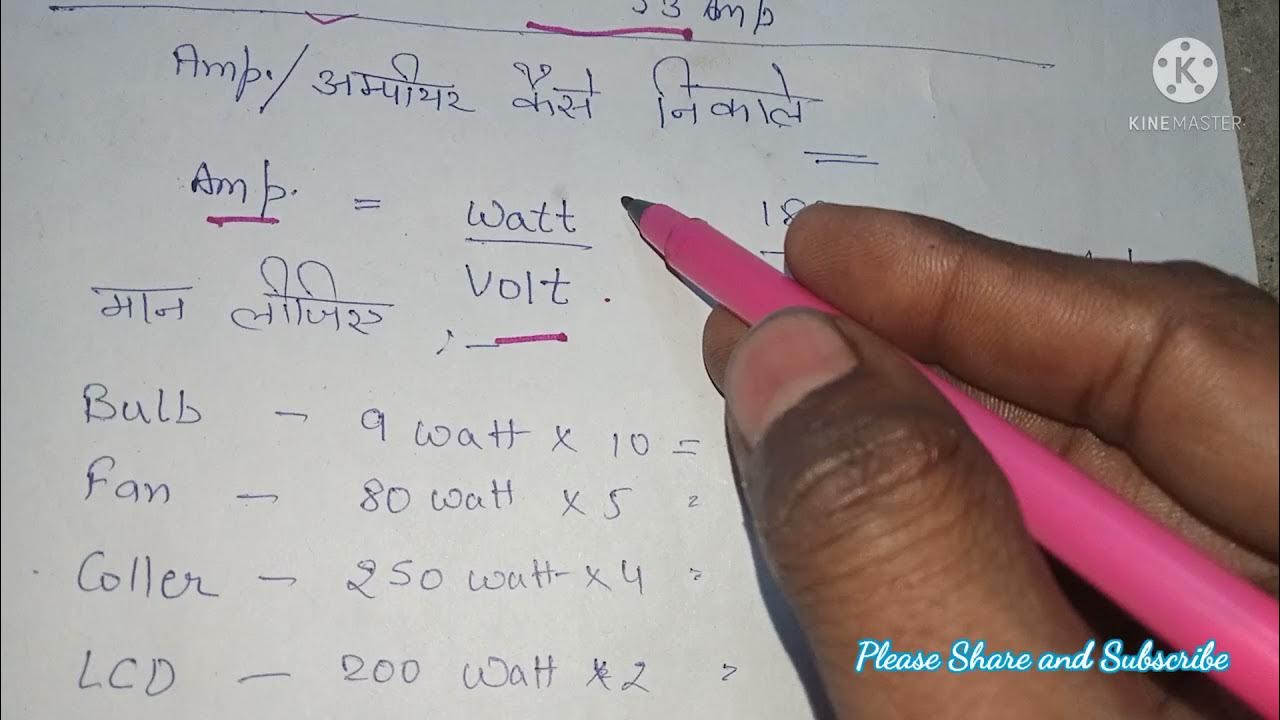 Amp
Amp./अम्पीयर कैसे निकाले
KINEMASTER
Amp. = Watt
Volt
मान लीजिए ,
Bulb - 9 watt x 10 =
Fan - 80 watt x 5 =
Coller - 250 watt x 4 =
LCD - 200 Watt x 2 =
Please Share and Subscribe